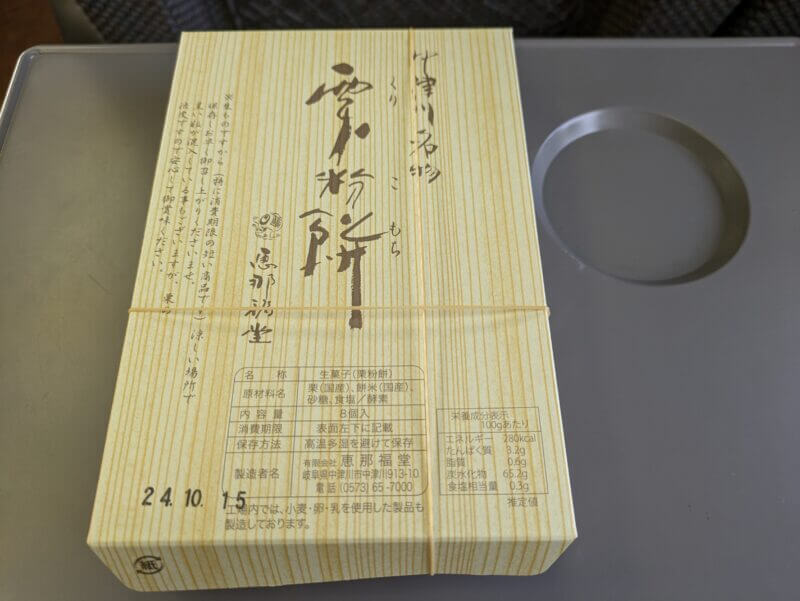 中津川名物
栗粉餅
くりこもち
恵那福堂
※生ものですから(特に消費期限の短い商品です)涼しい場所で
保存しお早く御召し上がりくださいませ。
黒い粒が混入している事もございますが、栗の
渋皮ですので安心して御賞味ください。
名称 生菓子(栗粉餅)
原材料名 栗(国産)、餅米(国産)、
砂糖、食塩/酵素
内容量 8個入
消費期限 表面左下に記載
保存方法 高温多湿を避けて保存
製造者名 有限会社 恵那福堂
岐阜県中津川市中津川913-10
電話(0573)65-7000
工場内では、小麦・卵・乳を使用した製品も
製造しております。
栄養成分表示
100gあたり
エネルギー 280kcal
たんぱく質 3.2g
脂質 0.6g
炭水化物 65.2g
食塩相当量 0.3g
推定値
24.10.15
紙